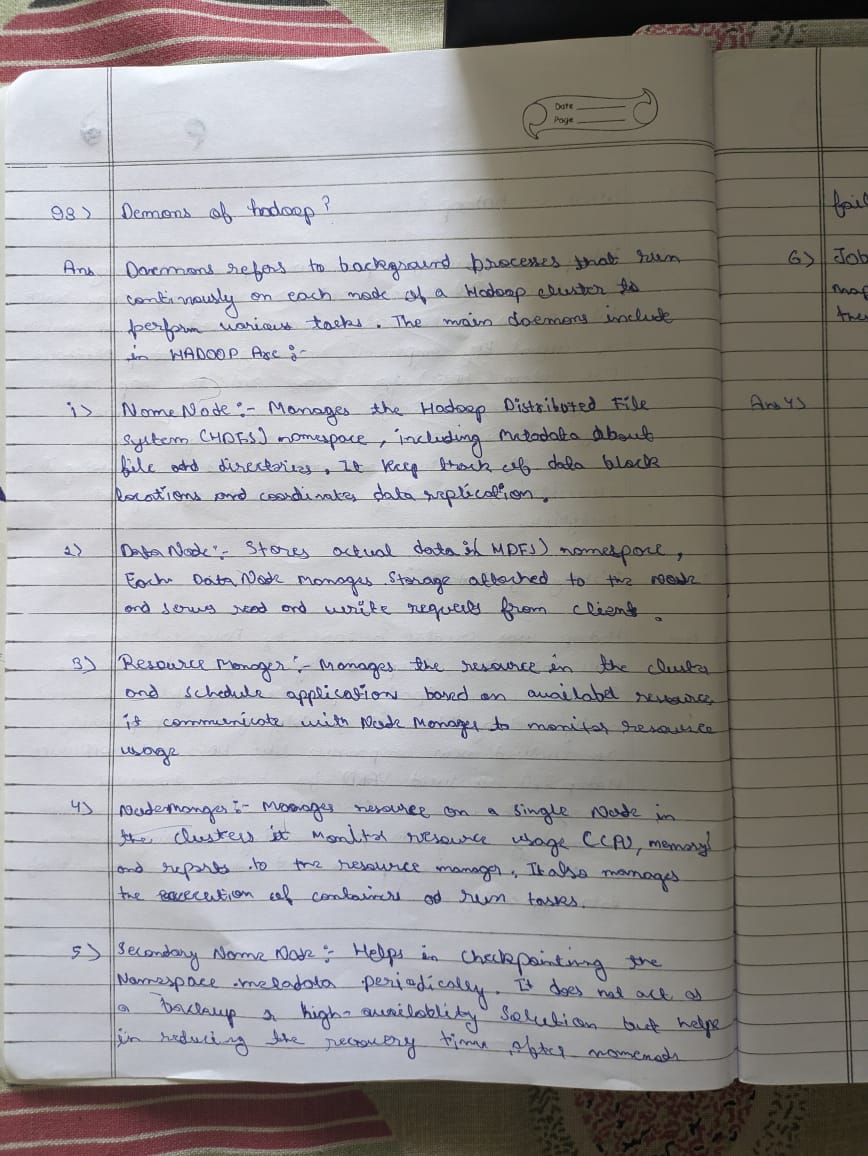 Date
Page
Q3> Demons of hadoop?
Ans Daemons refers to background processes that run
continously on each node of a Hadoop cluster to
perform various tasks. The main daemons include
in HADOOP Are :-
1> NameNode :- Manages the Hadoop Distributed File
System (HDFS) namespace, including metadata about
file and directories, It keep track of data block
locations and coordinates data replication.
2> Data Node :- Stores actual data in HDFS) namespace,
Each Data Node manages storage attached to the node
and serves read and write requests from clients.
3> Resource Manager :- Manages the resource in the cluster
and schedule application based on availabel resource
it communicate with Node Manager to monitor resource
usage
4> Nodemanger :- Manages resource on a single Node in
the clusters it monitor resource usage (CPU, memory)
and reports to the resource manager, It also manages
the execution of containers run tasks.
5> Secondary Name Node :- Helps in checkpointing the
Namespace metadata periodically. It does not act as
a backup or high-availablity solution but helps
in reducing the recovery time after namenode
fail
6> Job
map
the
Ans 4>